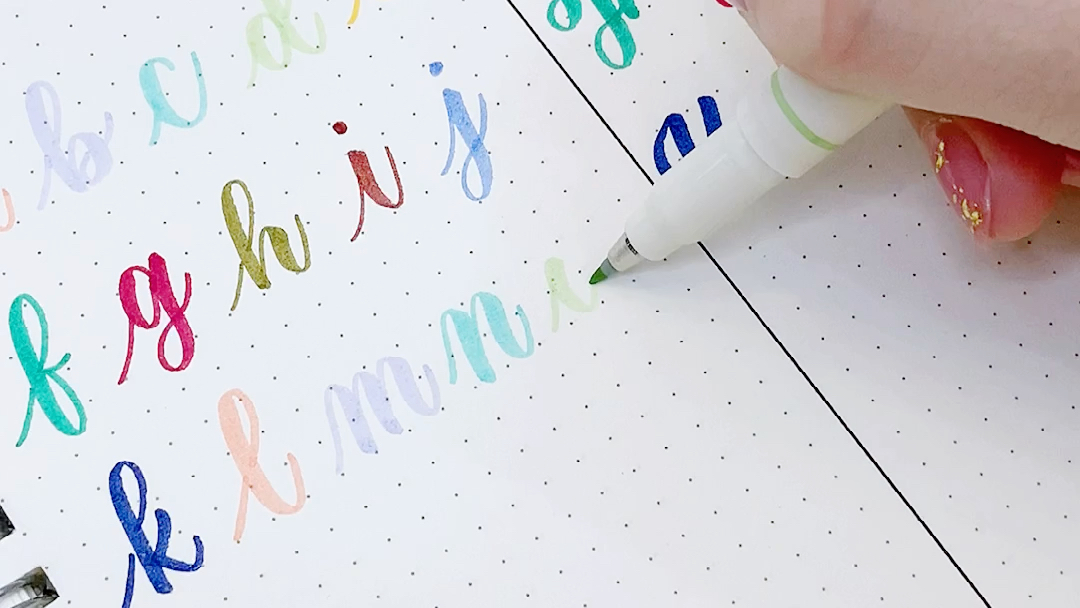 b c d
f g h i j
k l m n